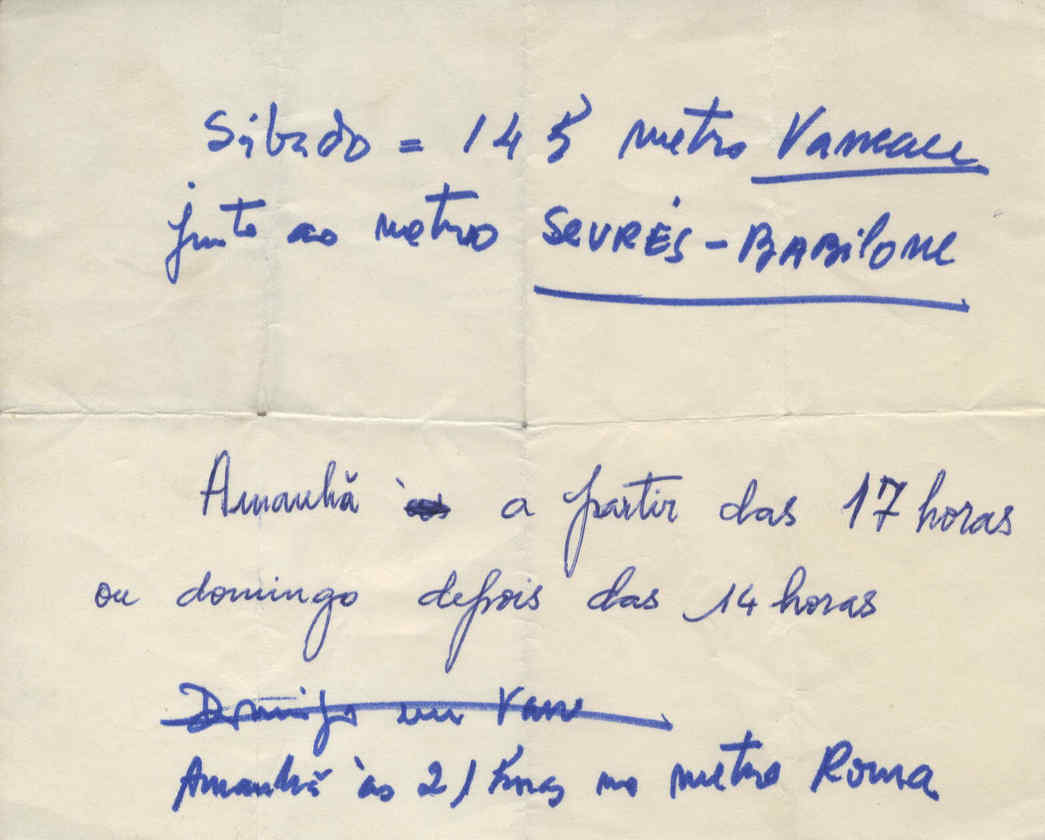 Sábado = 14 h metro Vaneau
junto ao metro SEVRÉS - BABiloNE
Amanhã a partir das 17 horas
ou domingo depois das 14 horas
Domingo em Vane
Amanhã às 21 horas no metro Roma